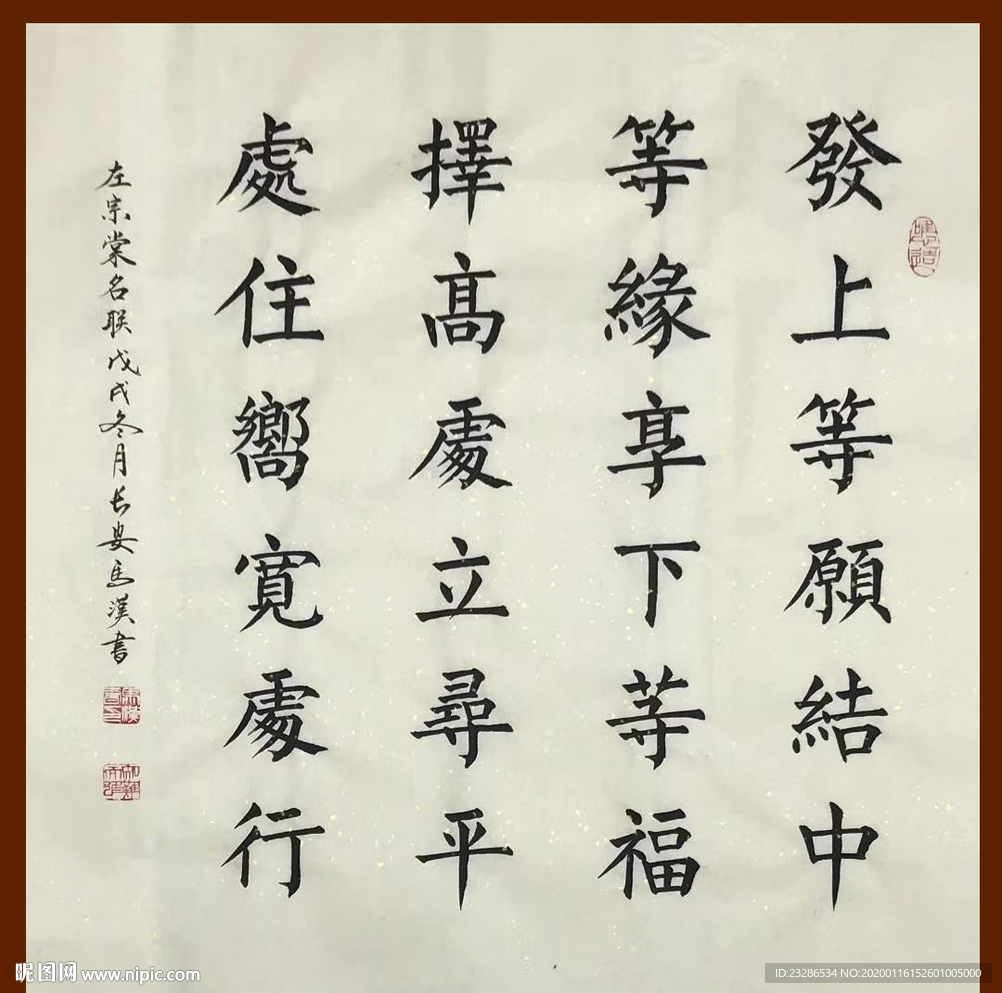 發上等願結中
等緣享下等福
擇髙處立尋平
處住嚮寬處行
左宗棠名联戊戌冬月长安马漢書
昵图网 www.nipic.com
ID:23286534 NO:20200116152601005000